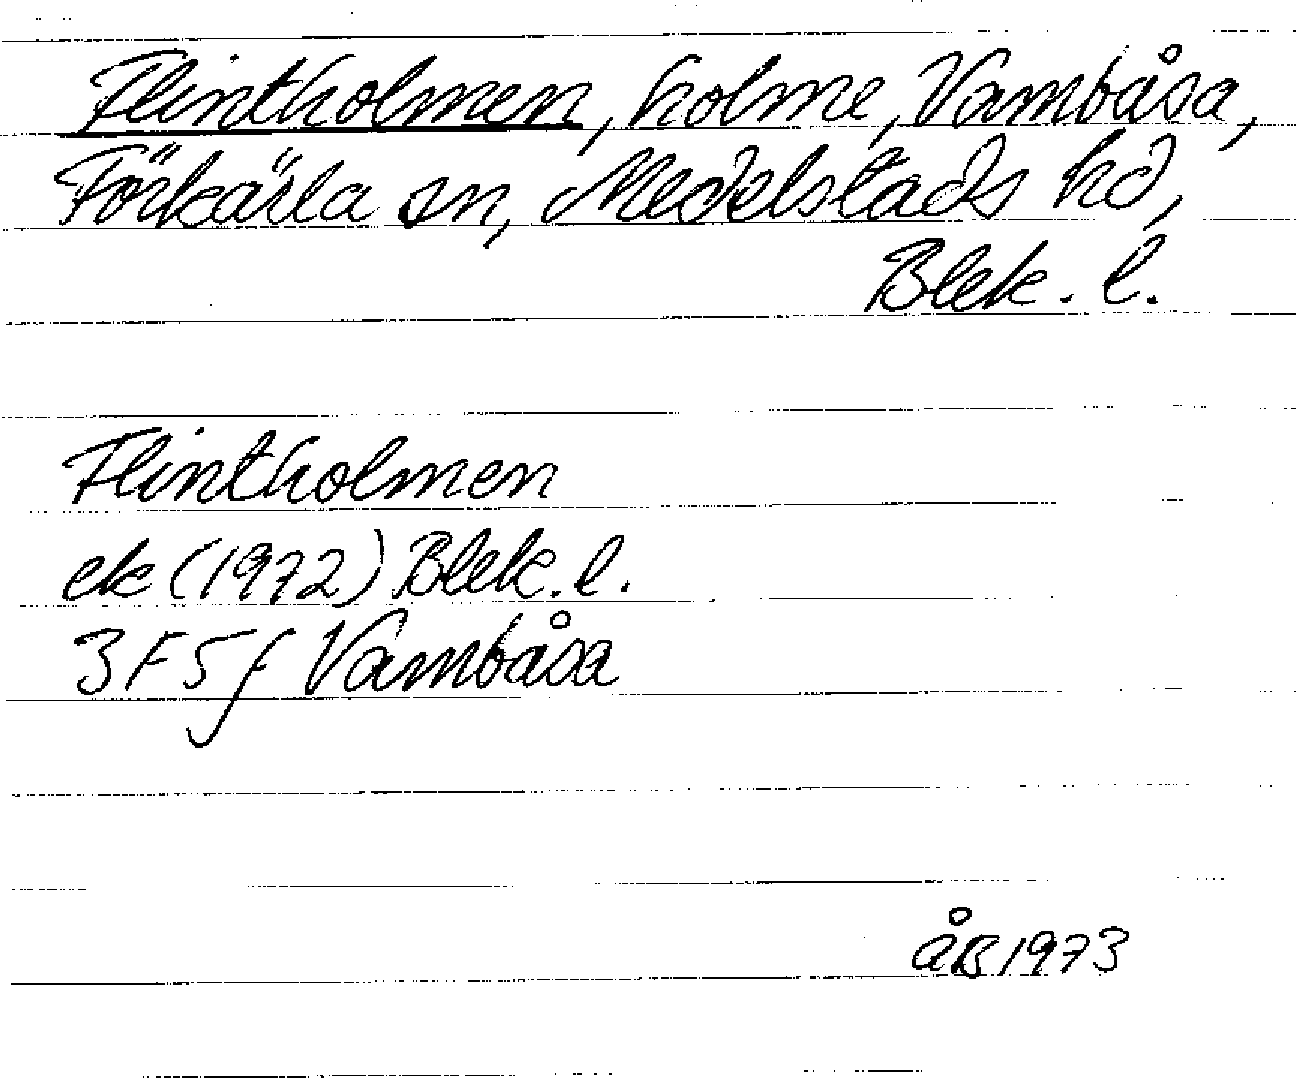 Flintholmen, holme, Vambåsa,
Förkärla sn, Medelstads hd,
Blek. l.
Flintholmen
ek (1972) Blek. l.
3F5f Vambåsa
åB 1973